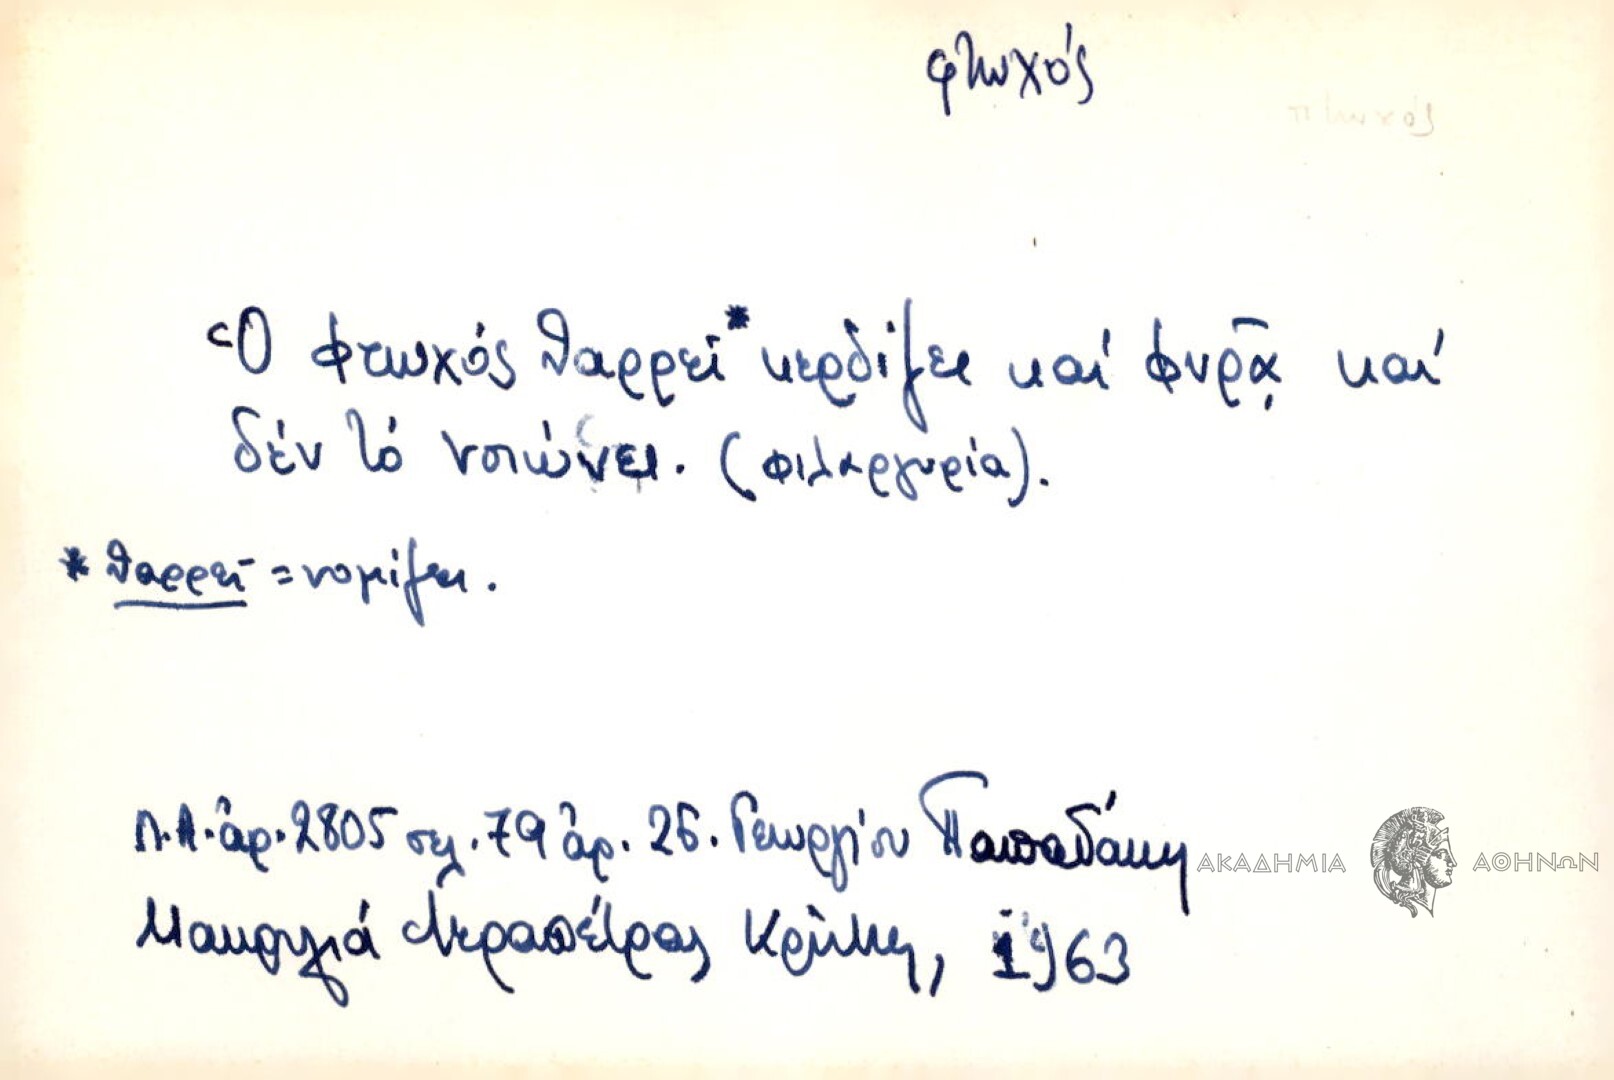 φτωχός
πτωχός
Ὁ φτωχός θαρρεῖ* κερδίζει καί φυρᾷ καί
δέν τό νοιώνει. (φιλαργυρία).
* θαρρεῖ = νομίζει.
Λ.Α. ἀρ. 2805 σελ. 79 ἀρ. 26. Γεωργίου Παπαδάκη
ΑΚΑΔΗΜΙΑ ΑΘΗΝΩΝ
Ἱεραπέτρας Κρήτης, 1963